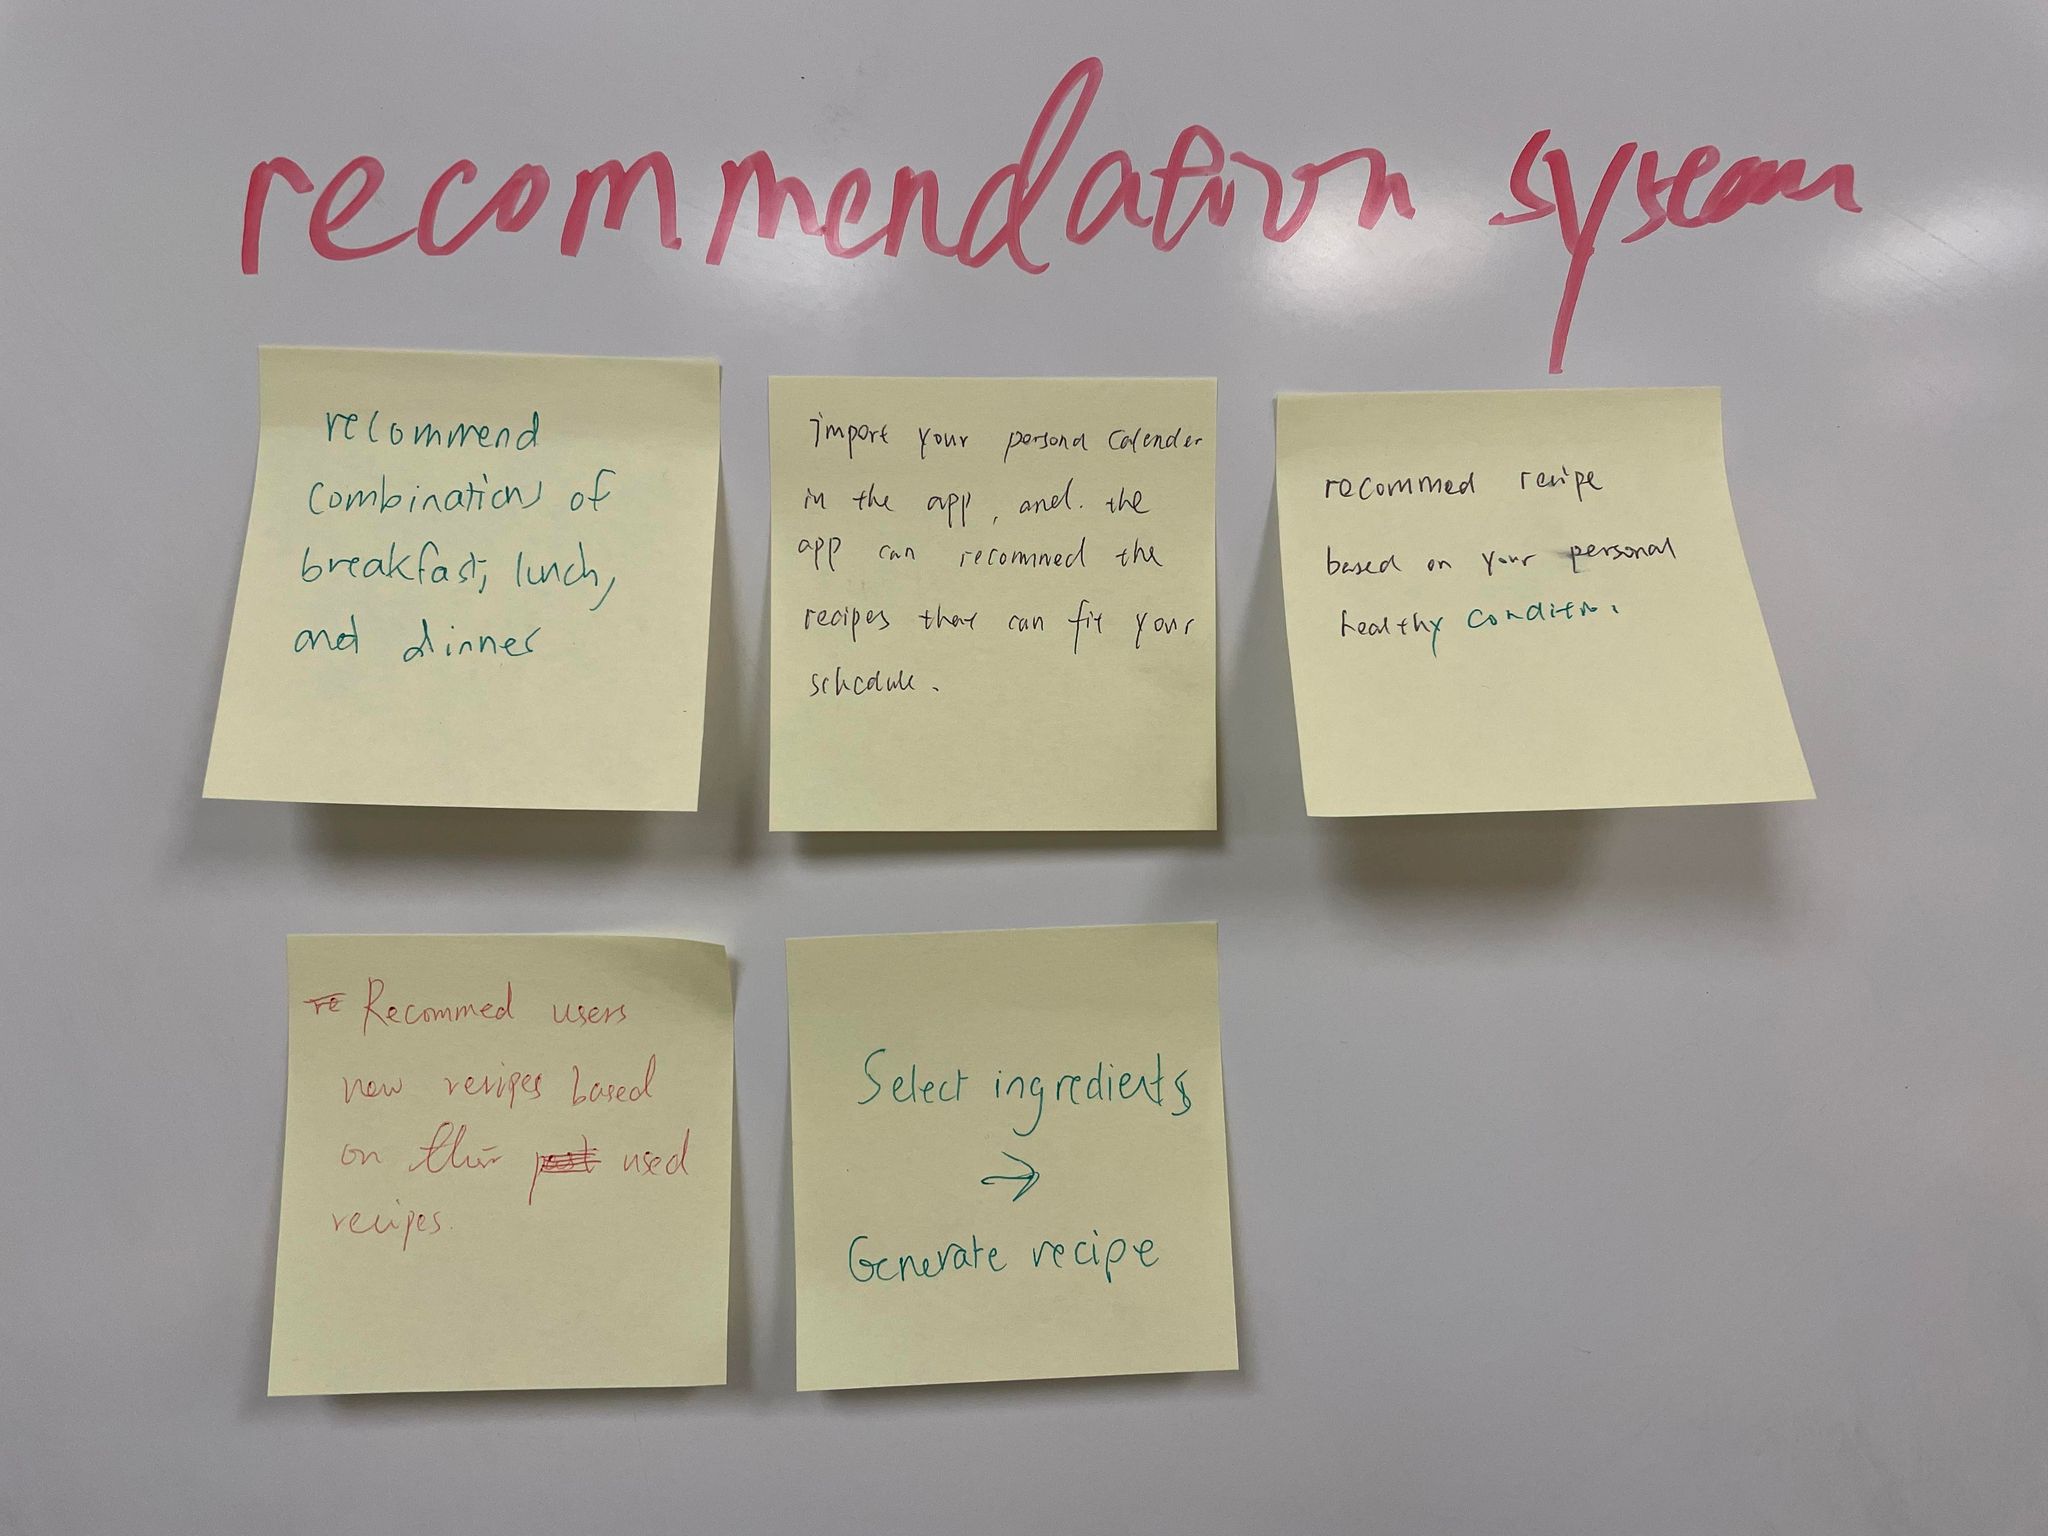 recommendation system
recommend
combinations of
breakfast, lunch,
and dinner
import your personal calender
in the app, and. the
app can recommed the
recipes that can fit your
schedule.
recommed recipe
based on your personal
healthy condition.
re Recommed users
new recipes based
on their past used
recipes.
Select ingredients
→
Generate recipe